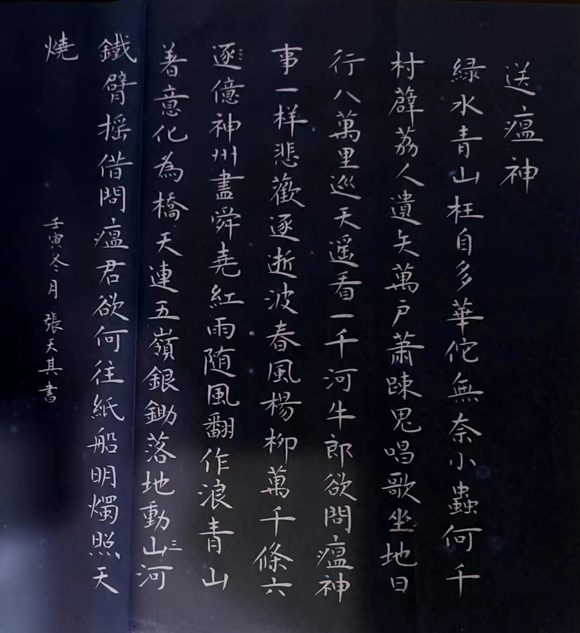 送瘟神
緑水青山枉自多華佗無奈小蟲何千
村薜荔人遺矢萬戶蕭踈鬼唱歌坐地日
行八萬里巡天遥看一千河牛郎欲問瘟神
事一样悲歡逐逝波春風楊柳萬千條六
逐億神州盡舜堯紅雨随風翻作浪青山
著意化為橋天連五嶺銀鋤落地動山三河
鐵臂摇借問瘟君欲何往紙船明燭照天
燒
壬寅冬月 張天其書